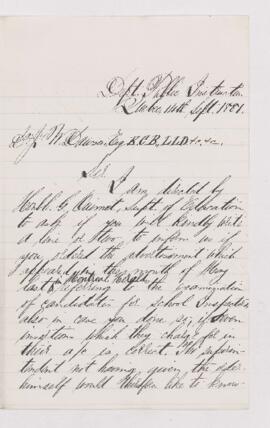 Dept. Public Instruction
Quebec 14th Sept. 1881.
W. Dawson Esq K.C.B, L.L.D &c. &c.
Sir
I am directed by
Honbl. G. Ouimet, Supt. of Education
to ask if you will kindly write
a line or two, to inform us if
you ordered the advertisement which
appeared in the month of May
last in Montreal Herald referring to the examination
of candidates for school Inspectors
also in case you done so, if seven
insertions which they charge for in
their a/c is correct. The superin-
tendent not having given the order
himself would therefore like to know